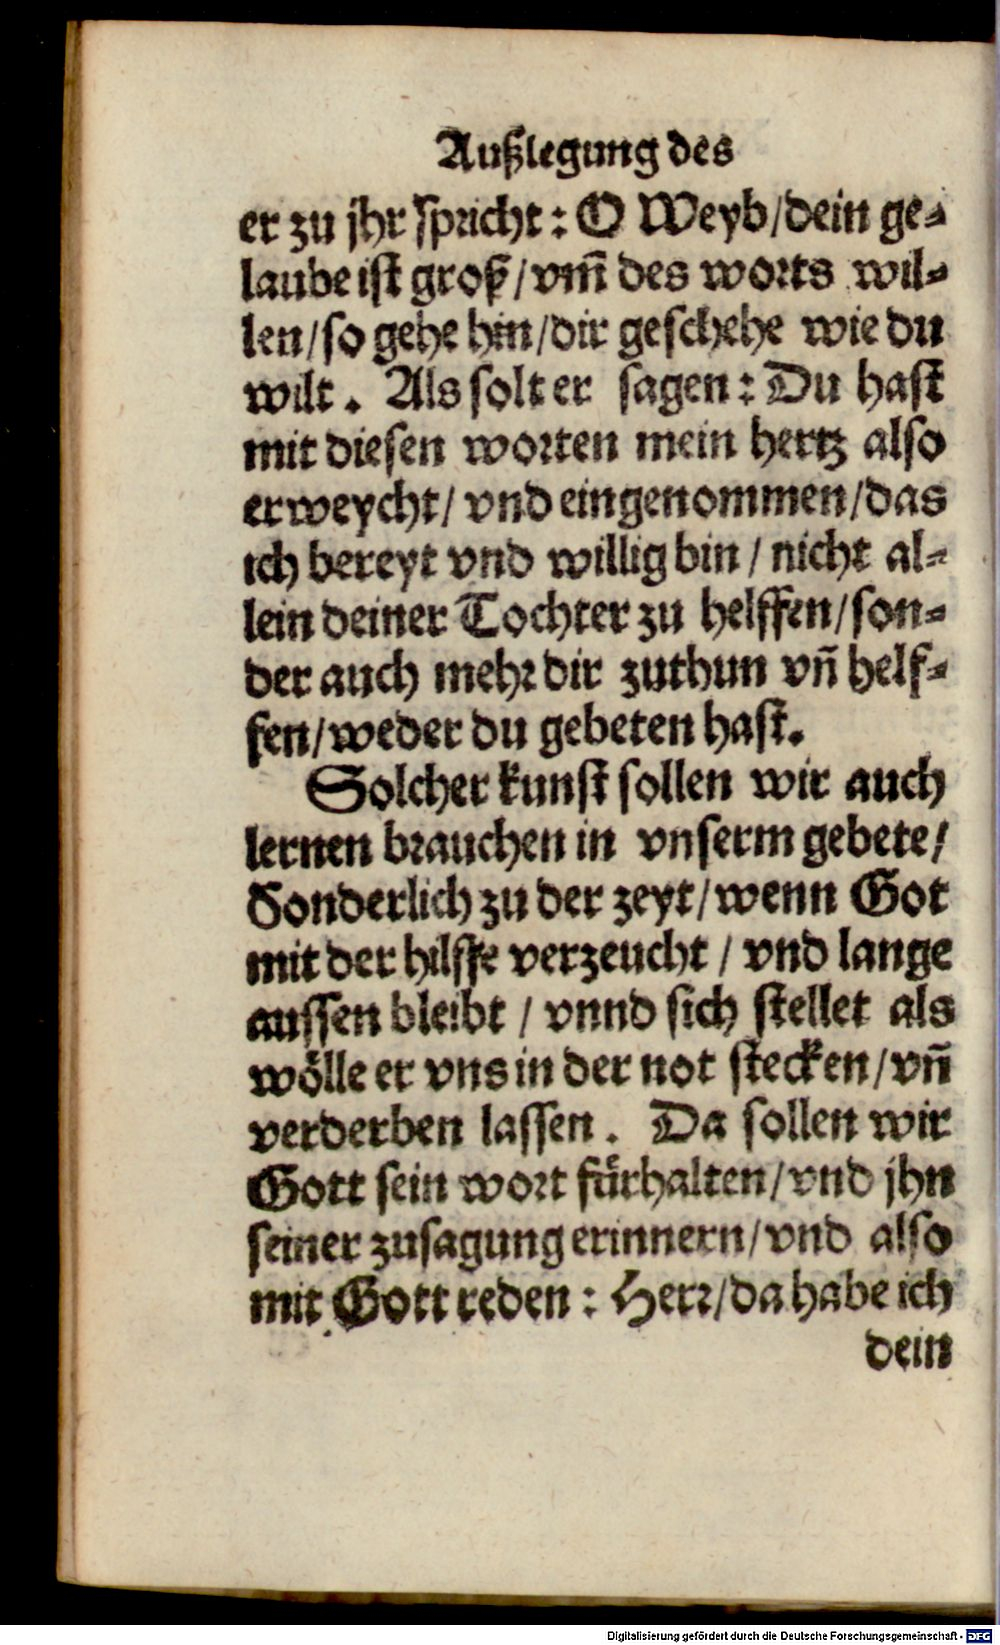 Außlegung des
er zu jhr spricht: O Weyb/dein ge-
laube ist groß/vm̃ des worts wil-
len/so gehe hin/dir geschehe wie du
wilt. Als solt er sagen: Du hast
mit diesen worten mein hertz also
erweycht/ vnd eingenommen/das
ich bereyt vnd willig bin / nicht al-
lein deiner Tochter zu helffen/son-
der auch mehr dir zuthun vñ helf-
fen/weder du gebeten hast.
Solcher kunst sollen wir auch
lernen brauchen in vnserm gebete/
Sonderlich zu der zeyt/wenn Got
mit der hilffe verzeucht / vnd lange
aussen bleibt / vnnd sich stellet als
wölle er vns in der not stecken/vñ
verderben lassen. Da sollen wir
Gott sein wort fürhalten/vnd jhn
seiner zusagung erinnern/vnd also
mit Gott reden: Herr/da habe ich
dein
Digitalisierung gefördert durch die Deutsche Forschungsgemeinschaft - DFG